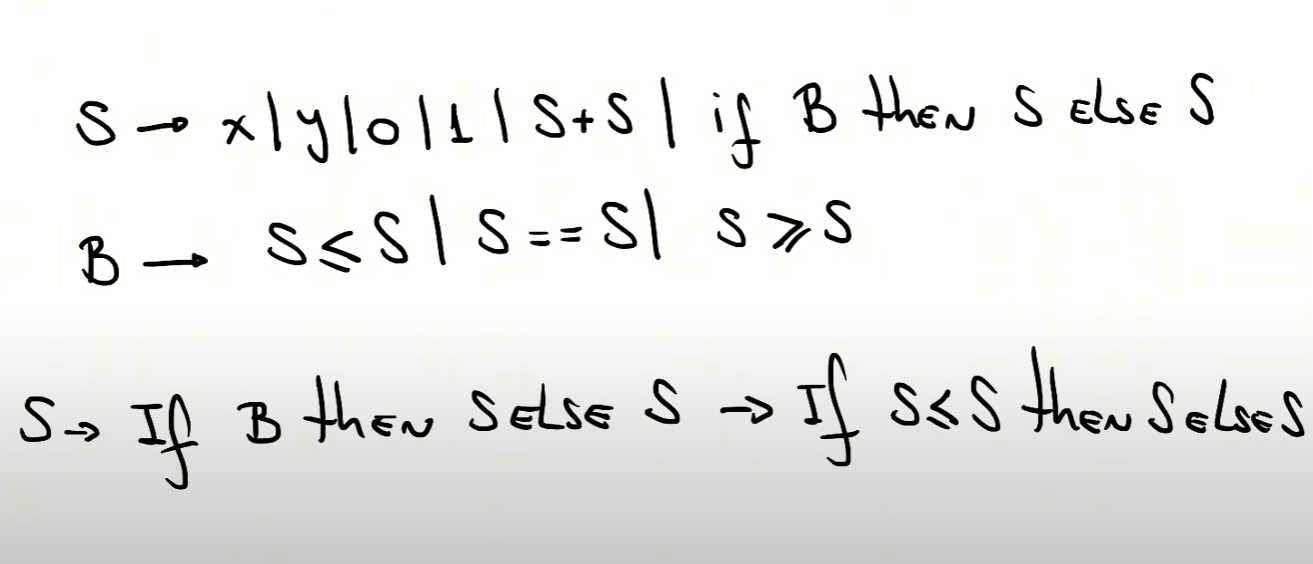 S → x | y | 0 | 1 | S+S | if B then S else S
B → S ≤ S | S == S | S ≥ S
S → If B then S else S → If S ≤ S then S else S